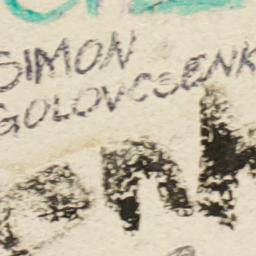 SIMON
GOLOVCSENK
enk